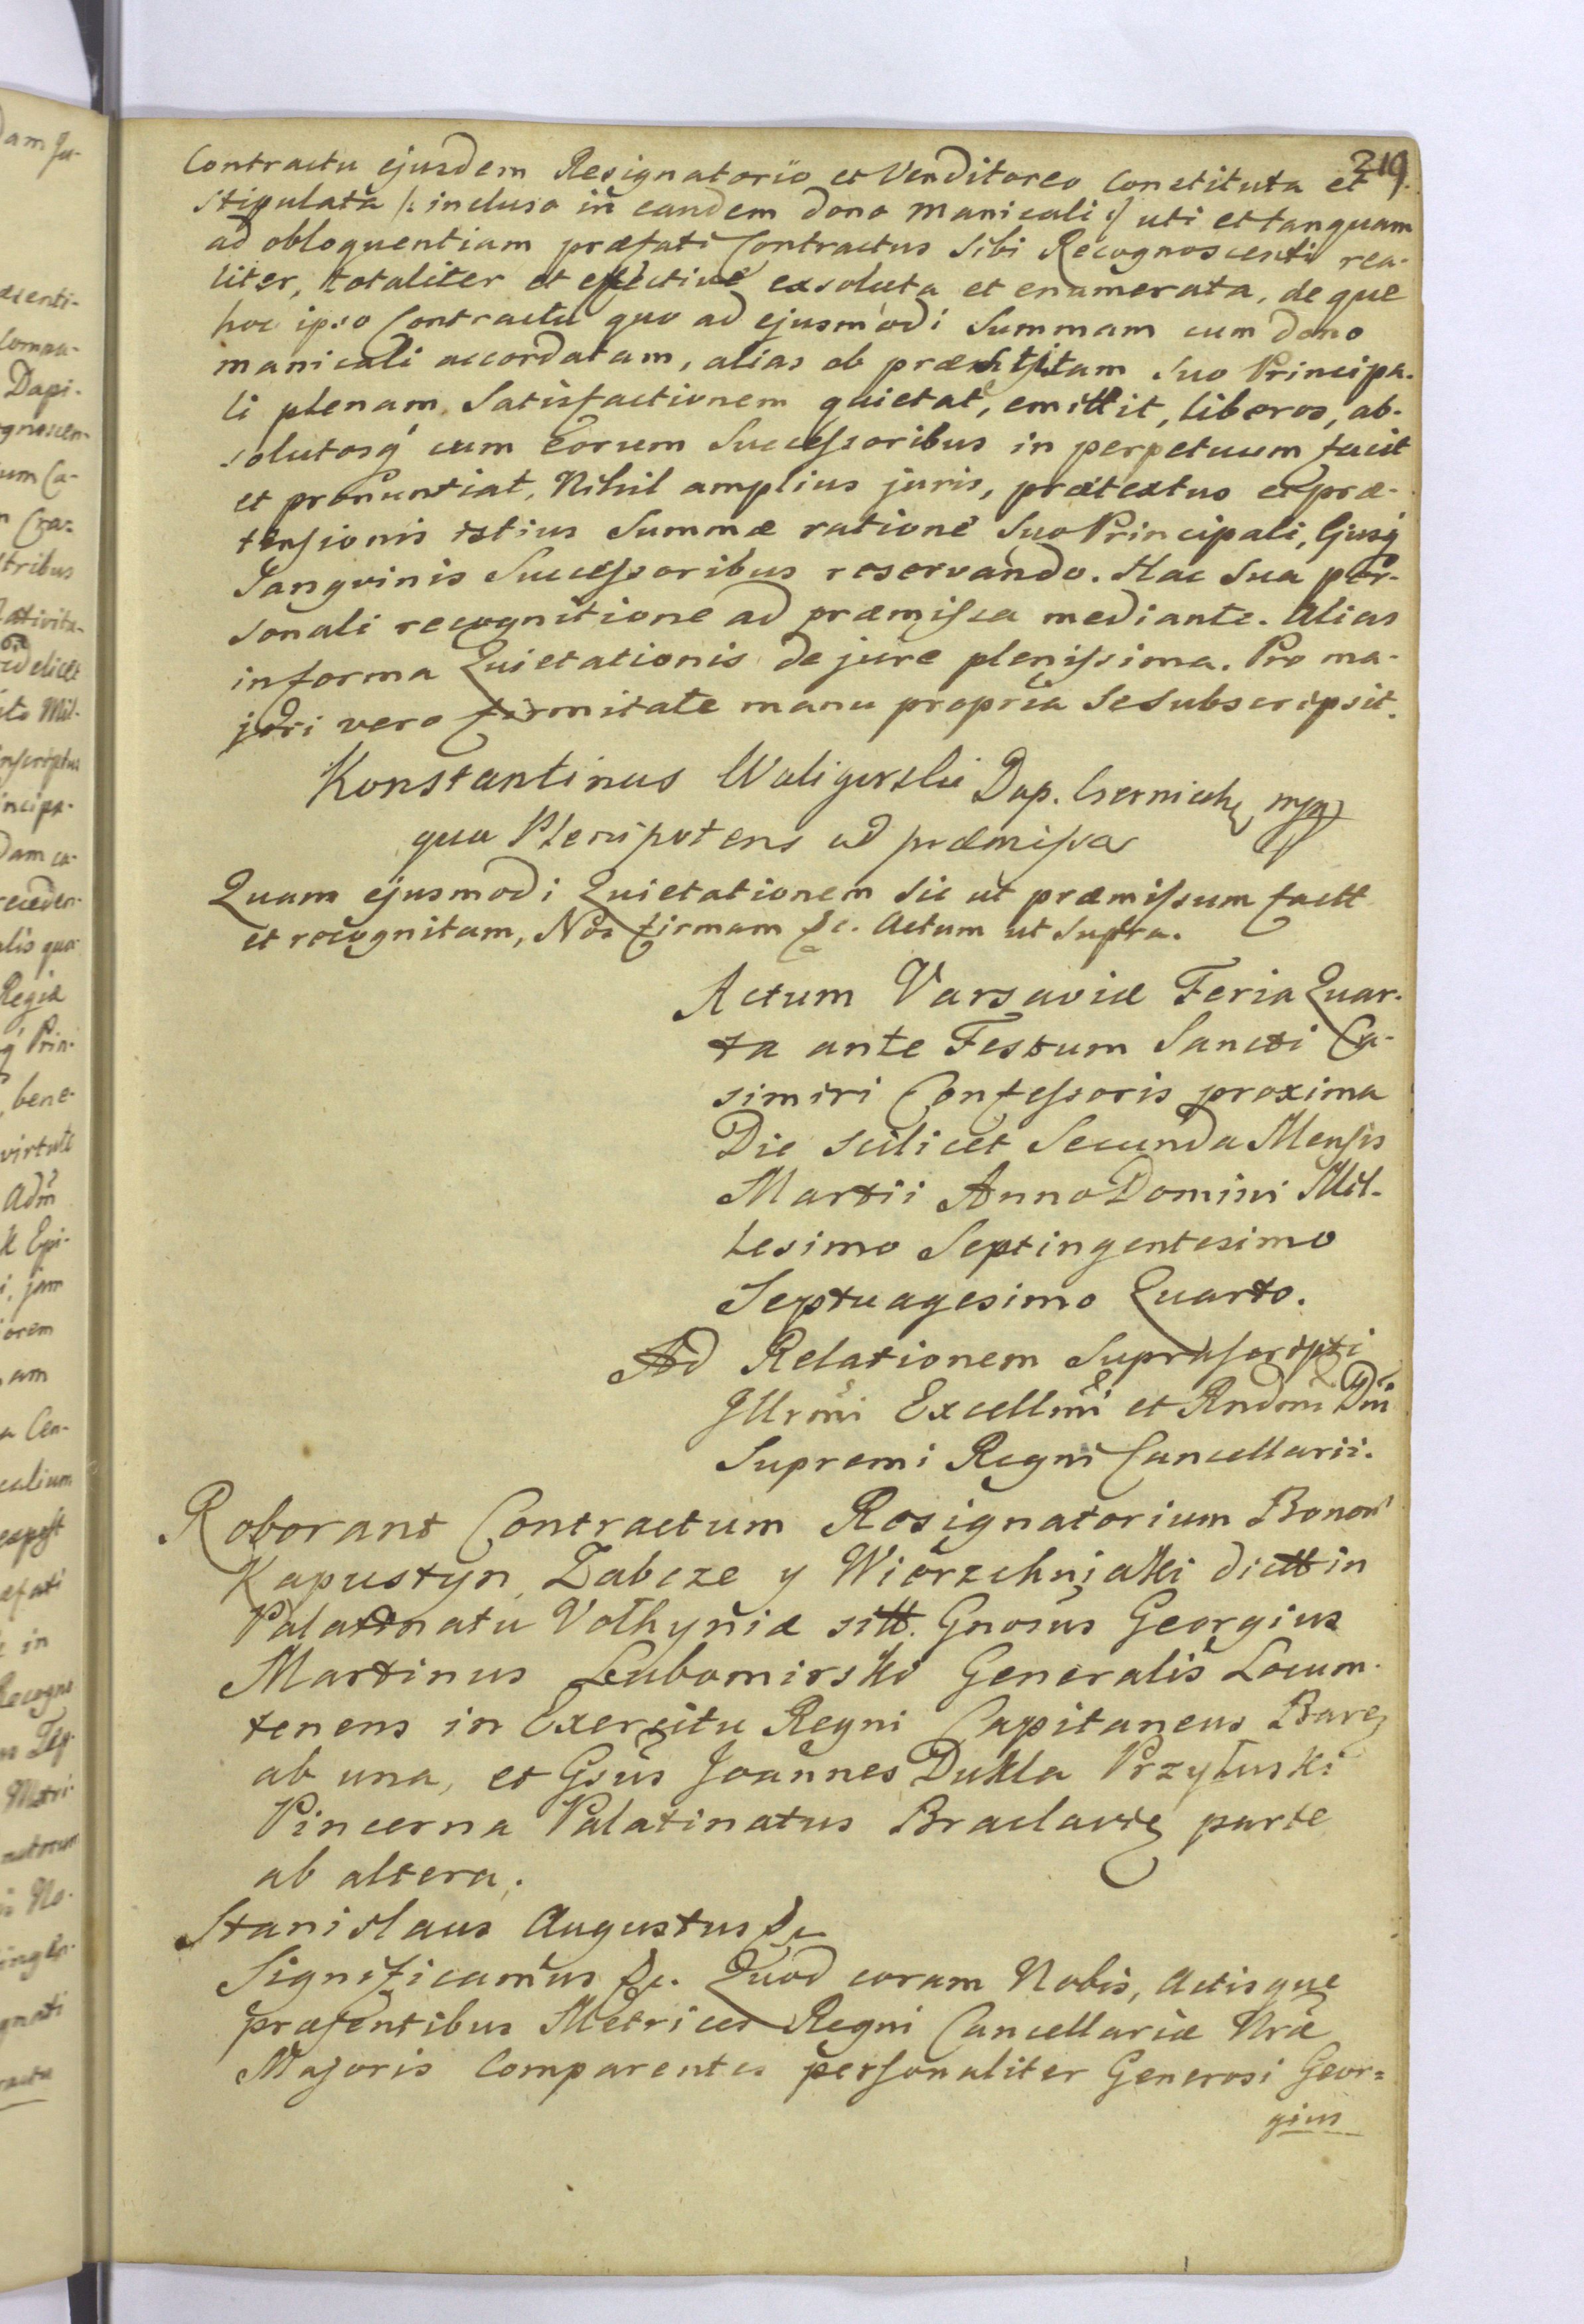 219.
Contractu ejusdem Resignatorio et Venditoreo Constituta et
stipulata /: incluso in eandem dono manicali :/ uti et tanquam
ad obloquentiam præfati Contractus Sibi Recognoscenti rea-
liter, totaliter et effective exsoluta et enumerata, de que
hoc ipso Contractu quo ad ejusmodi Summam cum dono
manicali accordatam, alias ob præstitam Suo Principa-
li plenam Satisfactionem quietat, emittit, liberos, ab-
solutosq́ cum Eorum Successoribus in perpetuum facit
et pronuntiat, Nihil amplius juris, prætextus et præ-
tensionis istius Summæ ratione Suo Principali, Ejusq́
Sangvinis Successoribus reservando. Hac Sua per-
sonali recognitione ad præmissa mediante. Alias
in forma Quietationis de jure plenissima. Pro ma-
jori vero firmitate manu propria Se subscripsit.
Konstantinus Waligurski Dap. Czerniech mpp
qua Plenipotens ad præmissa
Quam ejusmodi Quietationem Sic ut præmissum factt
et recognitam, Nos firmam &c. Actum ut Supra.
Actum Varsaviæ Feria Quar-
ta ante Festum Sancti Ca-
simiri Confessoris proxima
Die scilicet Secunda Mensis
Martii Anno Domini Mil-
lesimo Septingentesimo
Septuagesimo Quarto.
Ad Relationem Suprascripti
Illrmi Excellmi et Rndmi Dni
Supremi Regni Cancellarii.
Roborant Contractum Resignatorium Bonor
Kapustyn, Zabcze y Wiorzchniaki dictt in
Palatinatu Volhyniæ sitt. Gnosus Georgius
Martinus Lubomirski Generalis Locum-
tenens in Exercitu Regni Capitaneus Barę
ab una, et Gsus Joannes Dukla Przyłuski
Pincerna Palatinatus Braclavię parte
ab altera.
Stanislaus Augustus &c
Significamus &c. Quod coram Nobis, Actisque
præsentibus Metrices Regni Cancellariæ Nræ
Majoris Comparentes personaliter Generosi Geor=
gius